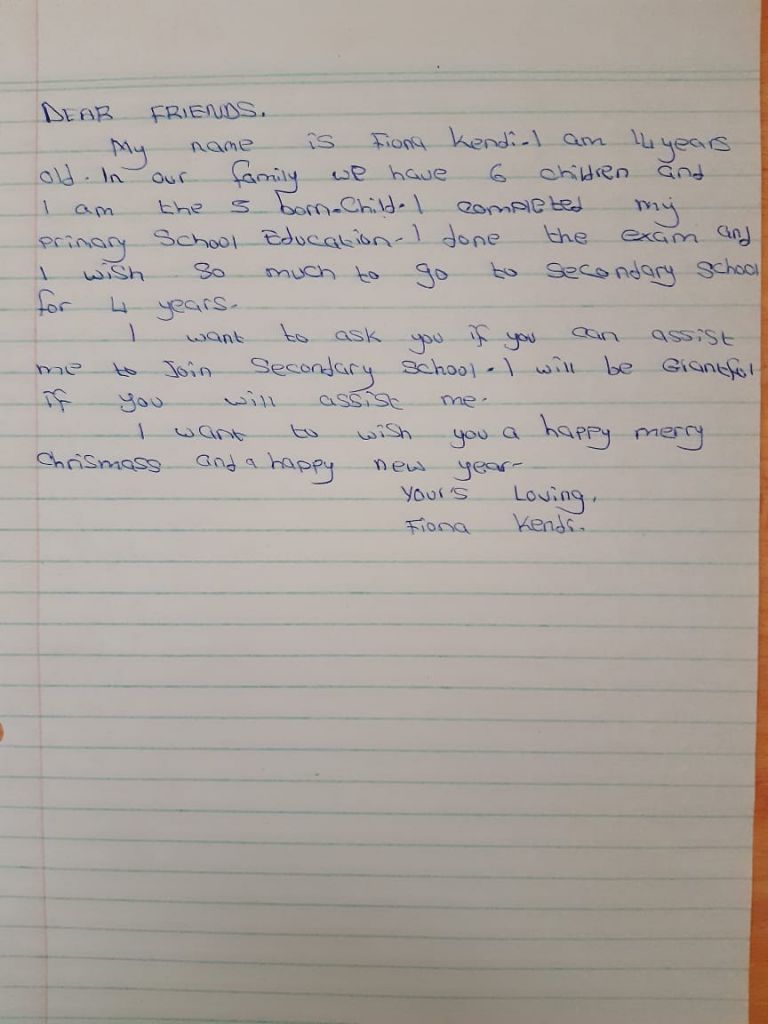 DEAR FRIENDS.
My name is Fiona Kendi. I am 14 years
old. In our family we have 6 children and
I am the 5 born-Child. I completed my
primary School Education. I done the exam and
I wish so much to go to Secondary School
for 4 years.
I want to ask you if you can assist
me to Join Secondary School. I will be Grantful
if you will assist me.
I want to wish you a happy merry
Chrismass and a happy new year-
Your's Loving,
Fiona Kendi.